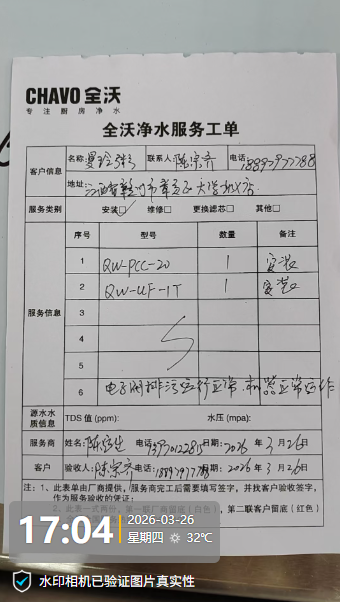 CHAVO 全沃
专注厨房净水
全沃净水服务工单
客户信息 名称 联系人 陈宗齐 电话
地址: 江西省
服务类别 安装☑ 维修□ 更换滤芯□ 其他□
服务信息 序号 型号 数量 备注
1 QW-PCC-20 1 安装
2 QW-UF-1T 1 安装
3
4
5
6 电子阀排污运行正常.机器正常运作
源水水质信息 TDS 值 (ppm): 水压 (mpa):
服务商 姓名: 陈 电话: 日期: 2026 年 3 月 26 日
客户 验收人: 陈宗齐 电话: 日期: 2026 年 3 月 26 日
注:1、此表单由厂商提供,服务商完工后需要填写签字,并找客户验收签字,
作为服务验收的凭证;
2、此表一式两份,第一联厂商留底(白色),第二联客户留底(红色)
17:04
2026-03-26
星期四 32℃
水印相机已验证图片真实性